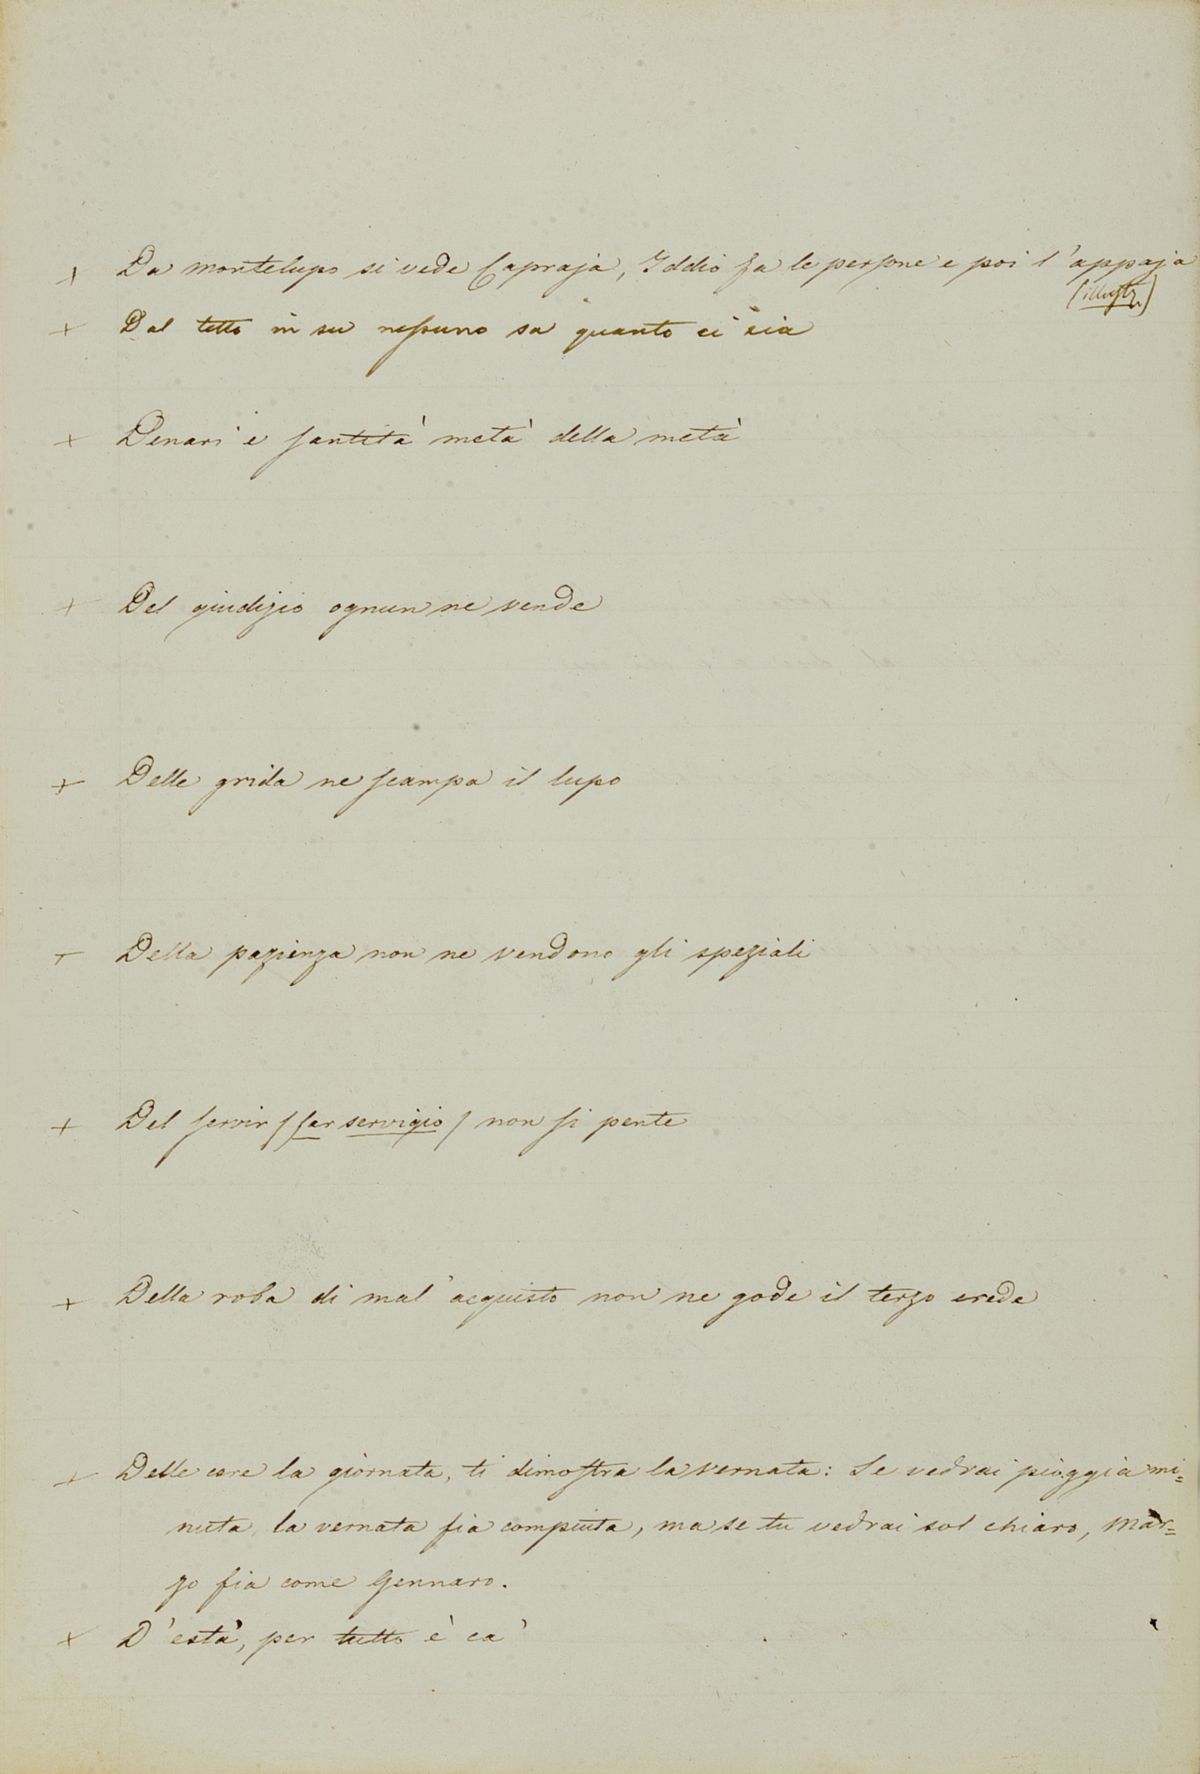 + Da Montelupo si vede Capraja, Iddio fa le persone e poi l'appaja
(illustr.)
+ Dal tetto in su nessuno sa quanto ci sia
+ Denari e santità metà della metà
+ Del giudizio ognun ne vende
+ Delle grida ne scampa il lupo
+ Della pazienza non ne vendono gli speziali
+ Del servir / far servigio / non si pente
+ Della roba di mal' acquisto non ne gode il terzo erede
+ Delle cere la giornata, ti dimostra la vernata: Se vedrai pioggia mi=
nuta, la vernata fia compiuta, ma se tu vedrai sol chiaro, Mar=
zo fia come Gennaro.
+ D'està, per tutto è ca'